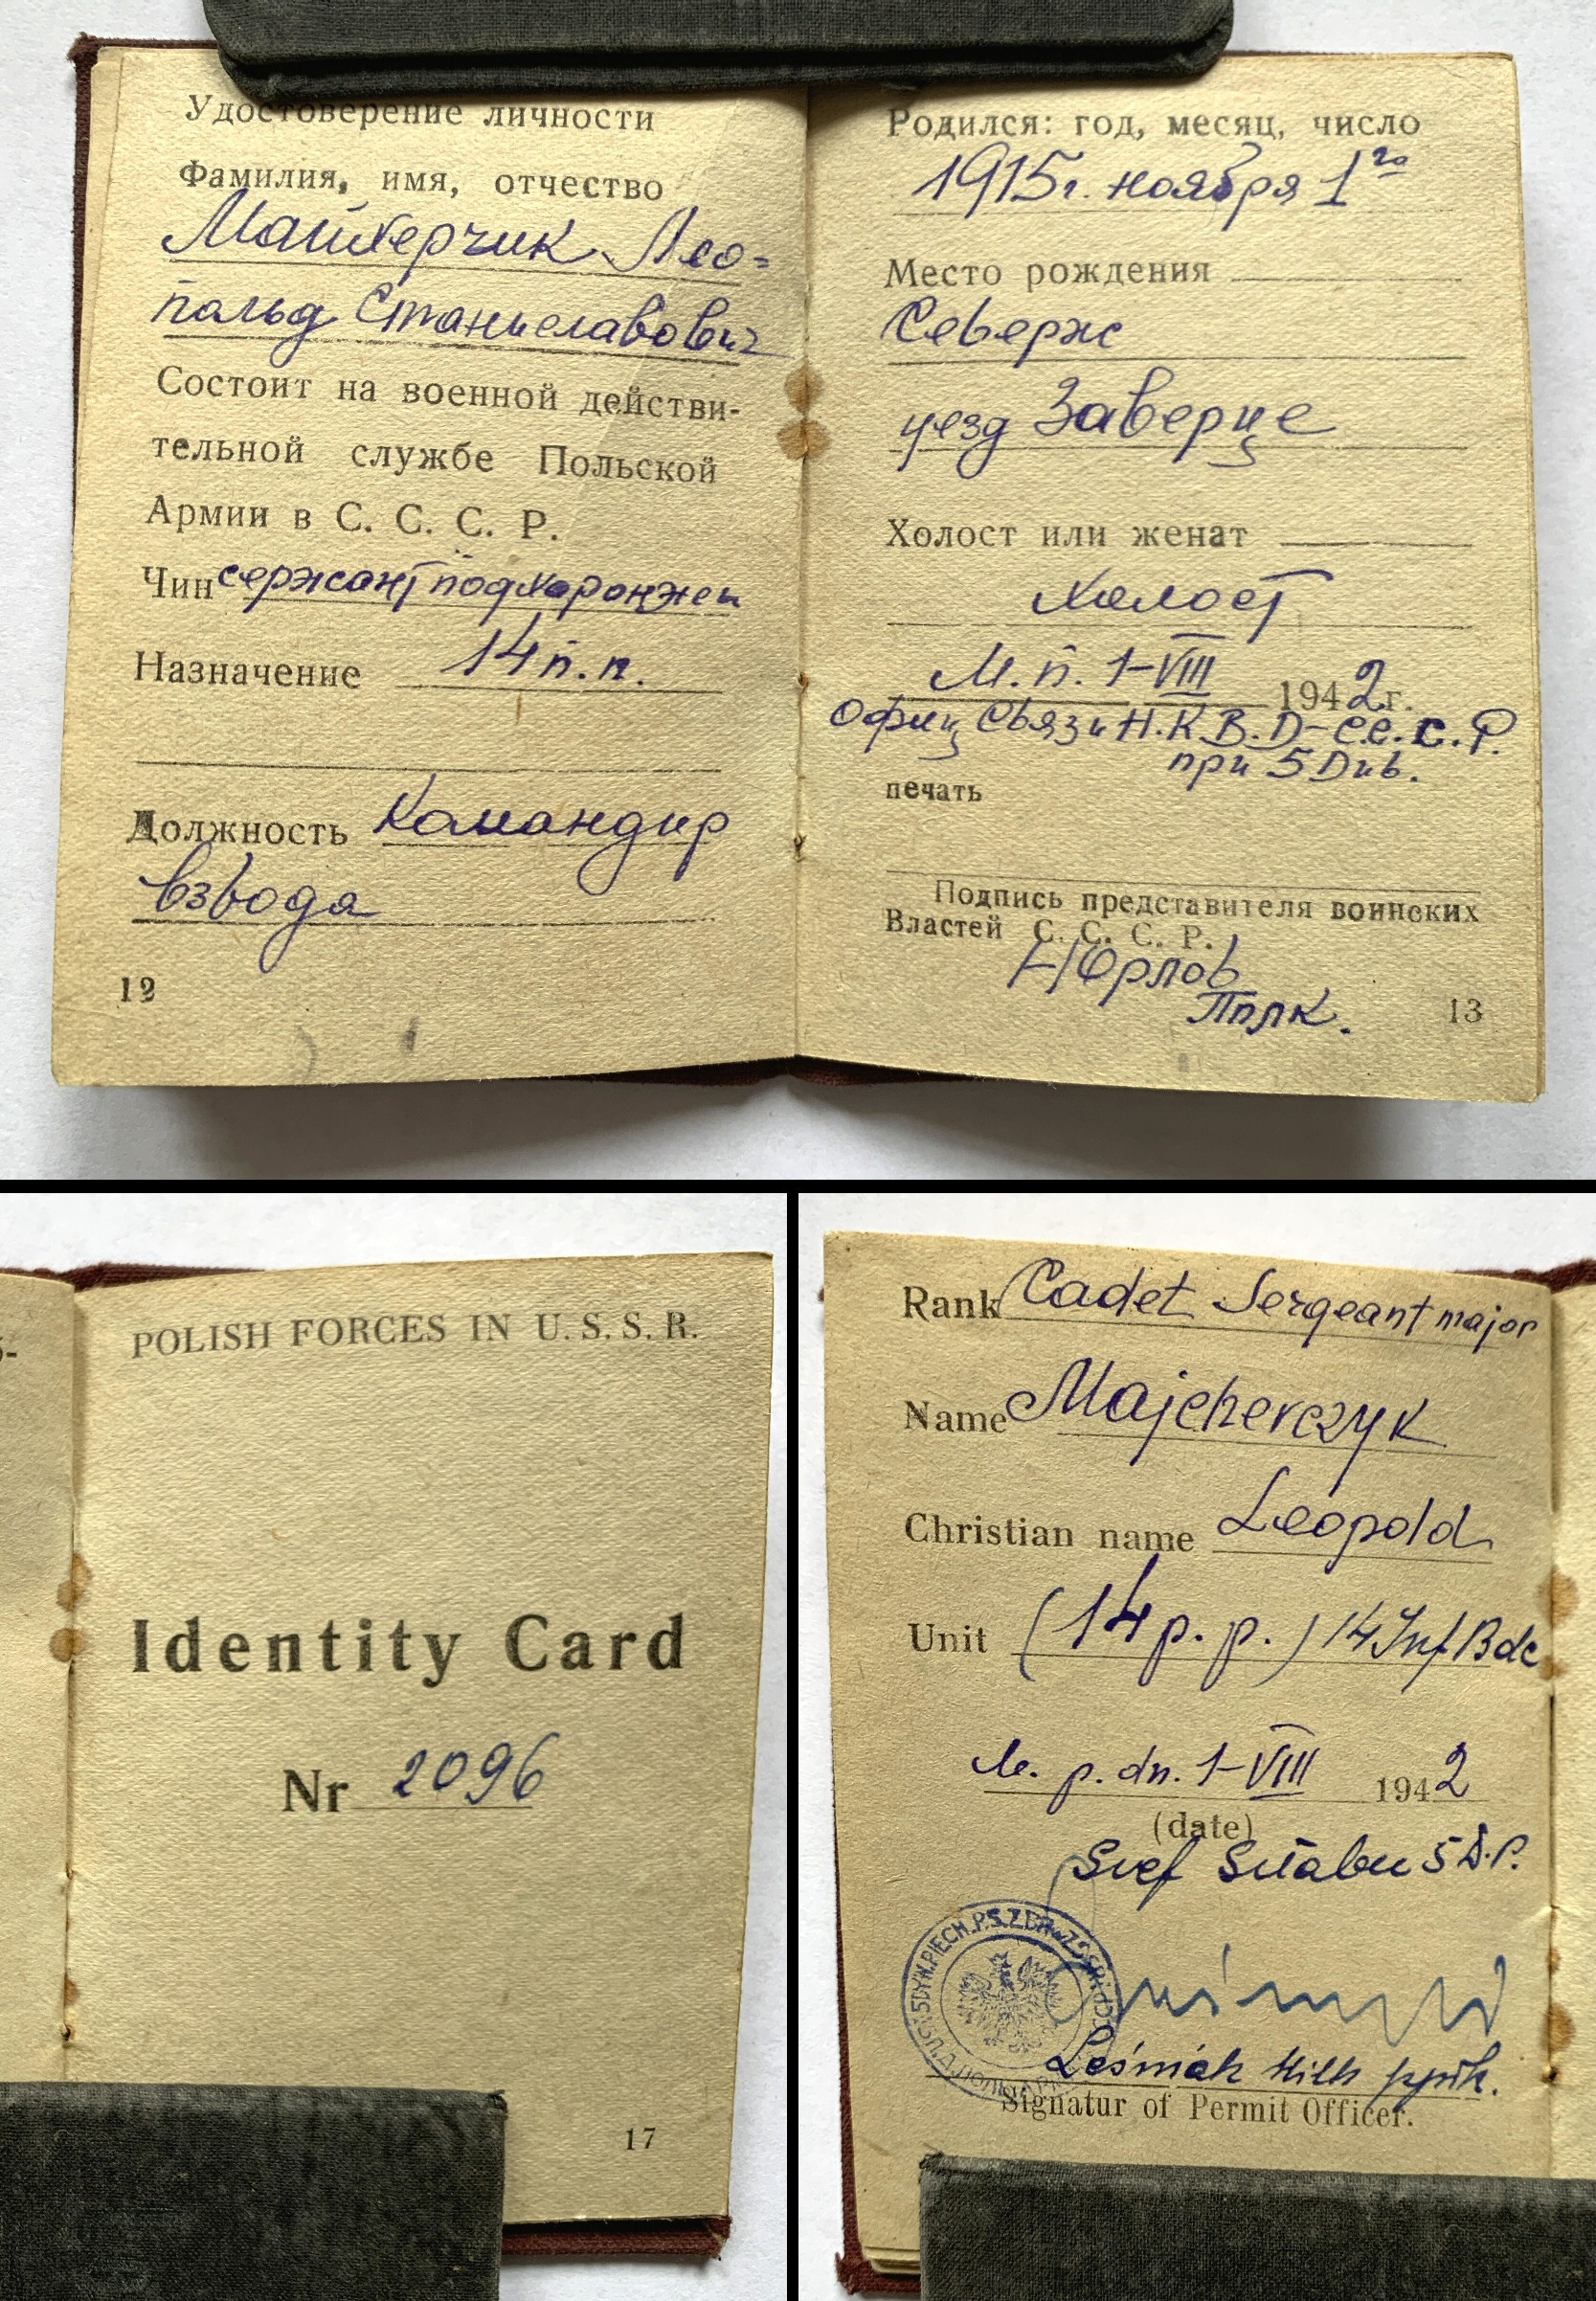 Удостоверение личности
Фамилия, имя, отчество
Майхерчик Лео-
польд Станиславович
Состоит на военной действи-
тельной службе Польской
Армии в С. С. С. Р.
Чин сержант подхоронжеи
Назначение 14 п.п.
Должность Командир
взвода
12
Родился: год, месяц, число
1915 г. ноября 1го
Место рождения
Северж
уезд Заверце
Холост или женат
холост
М. п. 1-VIII 1942 г.
Офиц Связи Н.К.В.D-С.С.С.Р.
при 5 Див.
печать
Подпись представителя воинских
Властей С. С. С. Р.
Орлов
Пплк.
13
POLISH FORCES IN U. S. S. R.
Identity Card
Nr 2096
17
Rank Cadet Sergeant major
Name Majcherczyk
Christian name Leopold
Unit (14 p. p.) 14 Inf Bde
M. p. dn. 1-VIII 1942
(date)
Szef Sztabu 5 D.P.
Leśniak ppłk.
Signatur of Permit Officer.